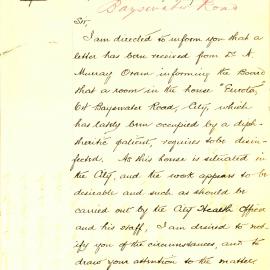 Bayswater Road
Sir,
I am directed to inform you that a
letter has been received from Dr. A.
Murray Oram informing the Board
that a room in the house "Eurota",
64 Bayswater Road, City, which
has lately been occupied by a diph-
theritic patient, requires to be disin-
fected. As this house is situated in
the City, and the work appears to be
desirable and such as should be
carried out by the City Health Officer
and his staff, I am desired to not-
ify you of the circumstances, and to
draw your attention to the matter